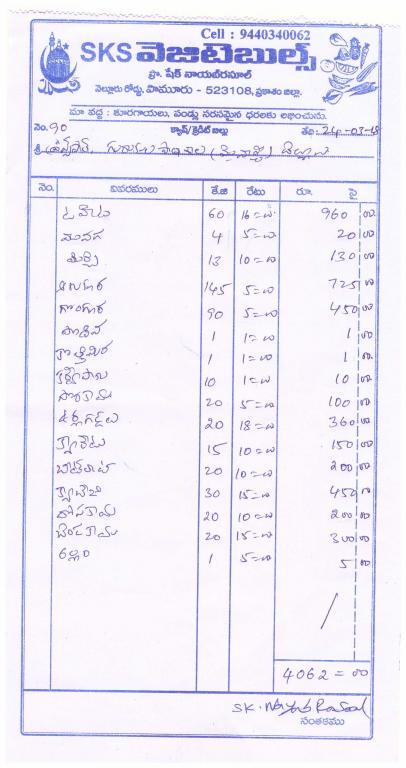 Cell : 9440340062
SKS వెజిటెబుల్స్
ప్రొ. షేక్ నాయబ్‌రసూల్
నెల్లూరు రోడ్డు, పామూరు - 523108, ప్రకాశం జిల్లా.
మా వద్ద : కూరగాయలు, పండ్లు సరసమైన ధరలకు లభించును.
నెం. 90 క్యాష్/క్రెడిట్ బిల్లు తేది 24-03-18
శ్రీ
నెం. వివరములు కే.జి రేటు రూ. పై
టమోట 60 16=00 960 00
మునగ 4 5=00 20 00
మిర్చి 13 10=00 130 00
ఆకుకూర 145 5=00 725 00
గొంగూర 90 5=00 450 00
పొదీన 1 1=00 1 00
కొత్తిమీర 1 1=00 1 00
10 1=00 10 00
20 5=00 100 00
ఉర్లగడ్డలు 20 18=00 360 00
క్యారెట్ 15 10=00 150 00
బీట్‌రూట్ 20 10=00 200 00
క్యాబేజి 30 15=00 450 00
దోసకాయ 20 10=00 200 00
బెండకాయ 20 15=00 300 00
అల్లం 1 5=00 5 00
4062=00
SK. Nayab Rasool
సంతకము